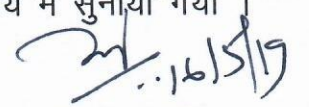 में सुनाया गया ।
16/5/19